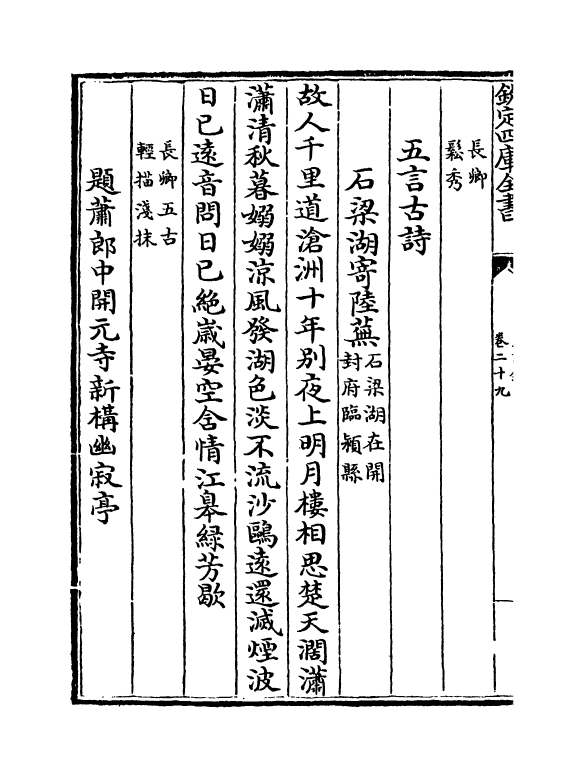 欽定四庫全書
卷二十九
長卿
鬆秀
五言古詩
石梁湖寄陸蕪
石梁湖在開
封府臨潁縣
故人千里道滄洲十年別夜上明月樓相思楚天濶瀟
瀟清秋暮嫋嫋涼風發湖色淡不流沙鷗遠還滅煙波
日已遠音問日已絶嵗晏空含情江臯緑芳歇
長卿五古
輕描淺抹
題蕭郎中開元寺新構幽寂亭